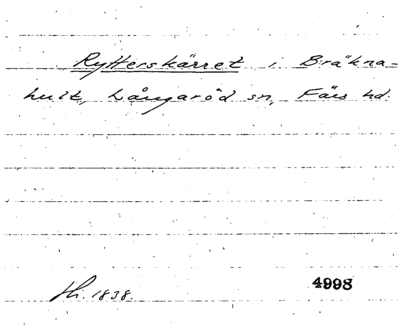 Rytterskärret i Bräkna-
hult, Långaröd sn, Färs hd.
Hi. 1838.
4998